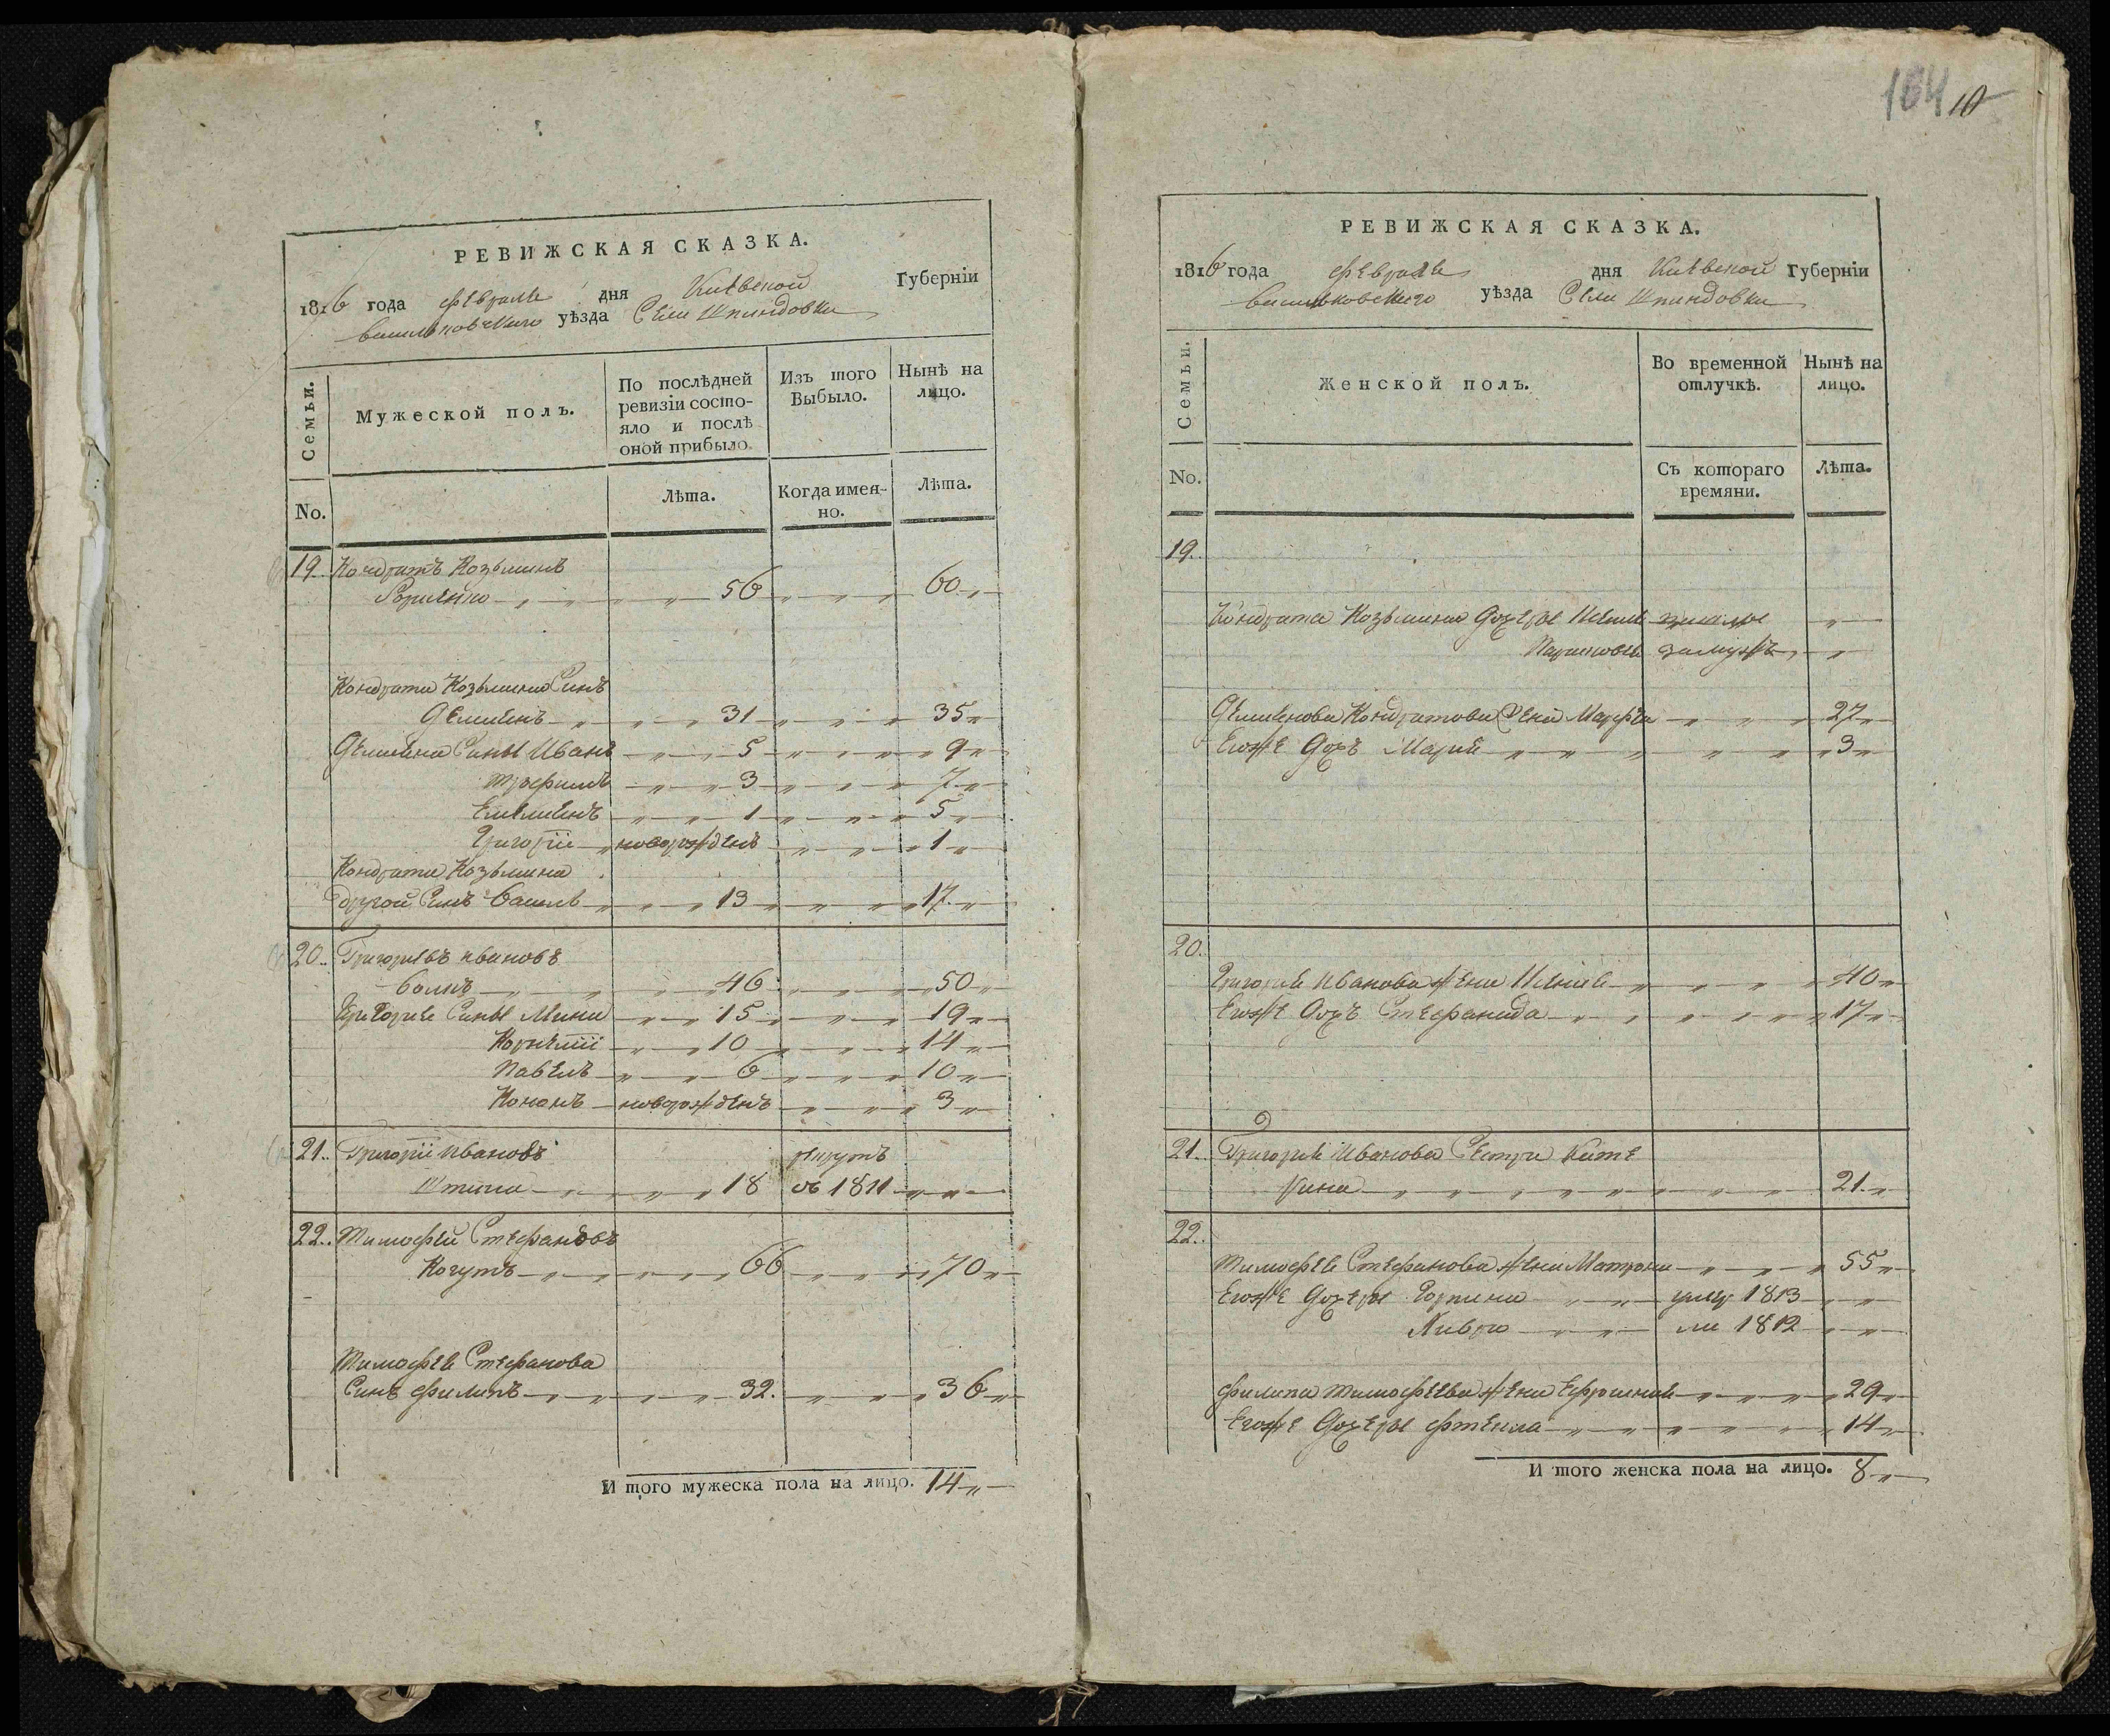 РЕВИЖСКАЯ СКАЗКА.
1816 года февраля дня Киевской Губернїи
васильковского уѣзда Села Шпиндовки
Семьи.
Мужеской полъ.
По послѣдней ревизїи состо-
яло и послѣ
оной прибыло.
Изъ того
Выбыло.
Нынѣ на
лицо.
No.
Лѣта.
Когда имен-
но.
Лѣта.
19. Кондратъ Козьминъ
56 60
Кондрата Козьмина Синъ
Демиянъ 31 35
Демияна Сины Иванъ 5 9
Трофимъ 3 7
Емелиянъ 1 5
Григорїи новорожденъ 1
Кондрата Козьмина
другой Синъ Василь 13 17
20. Григориевъ ивановъ
46 50
Григория Сины Мина 15 19
Корнелїи 10 14
Павелъ 6 10
Кононъ новорожденъ 3
21. Григорїи ивановъ рекрутъ
18 въ 1811
22. Тимофей Стефановъ
Когутъ 66 70
Тимофея Стефанова
Синъ филипъ 32. 36
И того мужеска пола на лицо. 14
164 10
РЕВИЖСКАЯ СКАЗКА.
1816 года февраля дня Киевской Губернїи
васильковского уѣзда Села Шпиндовки
Семьи.
Женской полъ.
Во временной
отлучкѣ.
Нынѣ на
лицо.
No.
Съ котораго
времяни.
Лѣта.
19.
Кондрата Козьмина дочеры
замужъ
Демиянова Кондратова жена Марфа 27
Егоже дочъ Мария 3
20.
Григория Иванова жена 40
Егоже дочъ Стефанида 17
21. Григория Иванова Сестра Кате
рина 21
22.
Тимофея Стефанова жена Матрона 55
Егоже дочеры Горпина 1813
1812
филипа тимофеева жена Ефросиния 29
Егоже дочеры 14
И того женска пола на лицо. 8